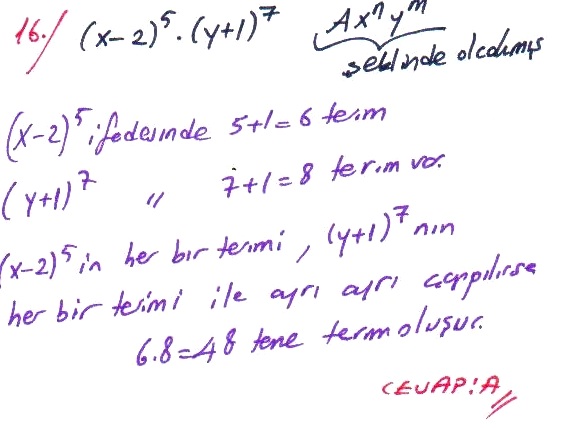 16./ (x-2)⁵.(y+1)⁷ Axⁿyᵐ
şeklinde olacakmış
(x-2)⁵ ifadesinde 5+1=6 terim
(y+1)⁷ " 7+1=8 terim var.
(x-2)⁵ in her bir terimi, (y+1)⁷ nın
her bir terimi ile ayrı ayrı çarpılırsa
6.8=48 tane term oluşur.
CEVAP:A